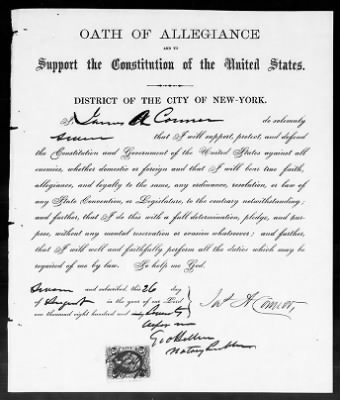 OATH OF ALLEGIANCE
AND TO
Support the Constitution of the United States.
DISTRICT OF THE CITY OF NEW-YORK.
I, James A Connor do solemnly
swear that I will support, protect, and defend
the Constitution and Government of the United States against all
enemies, whether domestic or foreign and that I will bear true faith,
allegiance, and loyalty to the same, any ordinance, resolution, or law of
any State Convention, or Legislature, to the contrary notwithstanding;
and further, that I do this with a full determination, pledge, and pur-
pose, without any mental reservation or evasion whatsoever; and further,
that I will well and faithfully perform all the duties which may be
required of me by law. So help me God.
Sworn and subscribed, this 26 day
of August in the year of our Lord
one thousand eight hundred and seventy
Jas A Connor,
before me
Notary Public